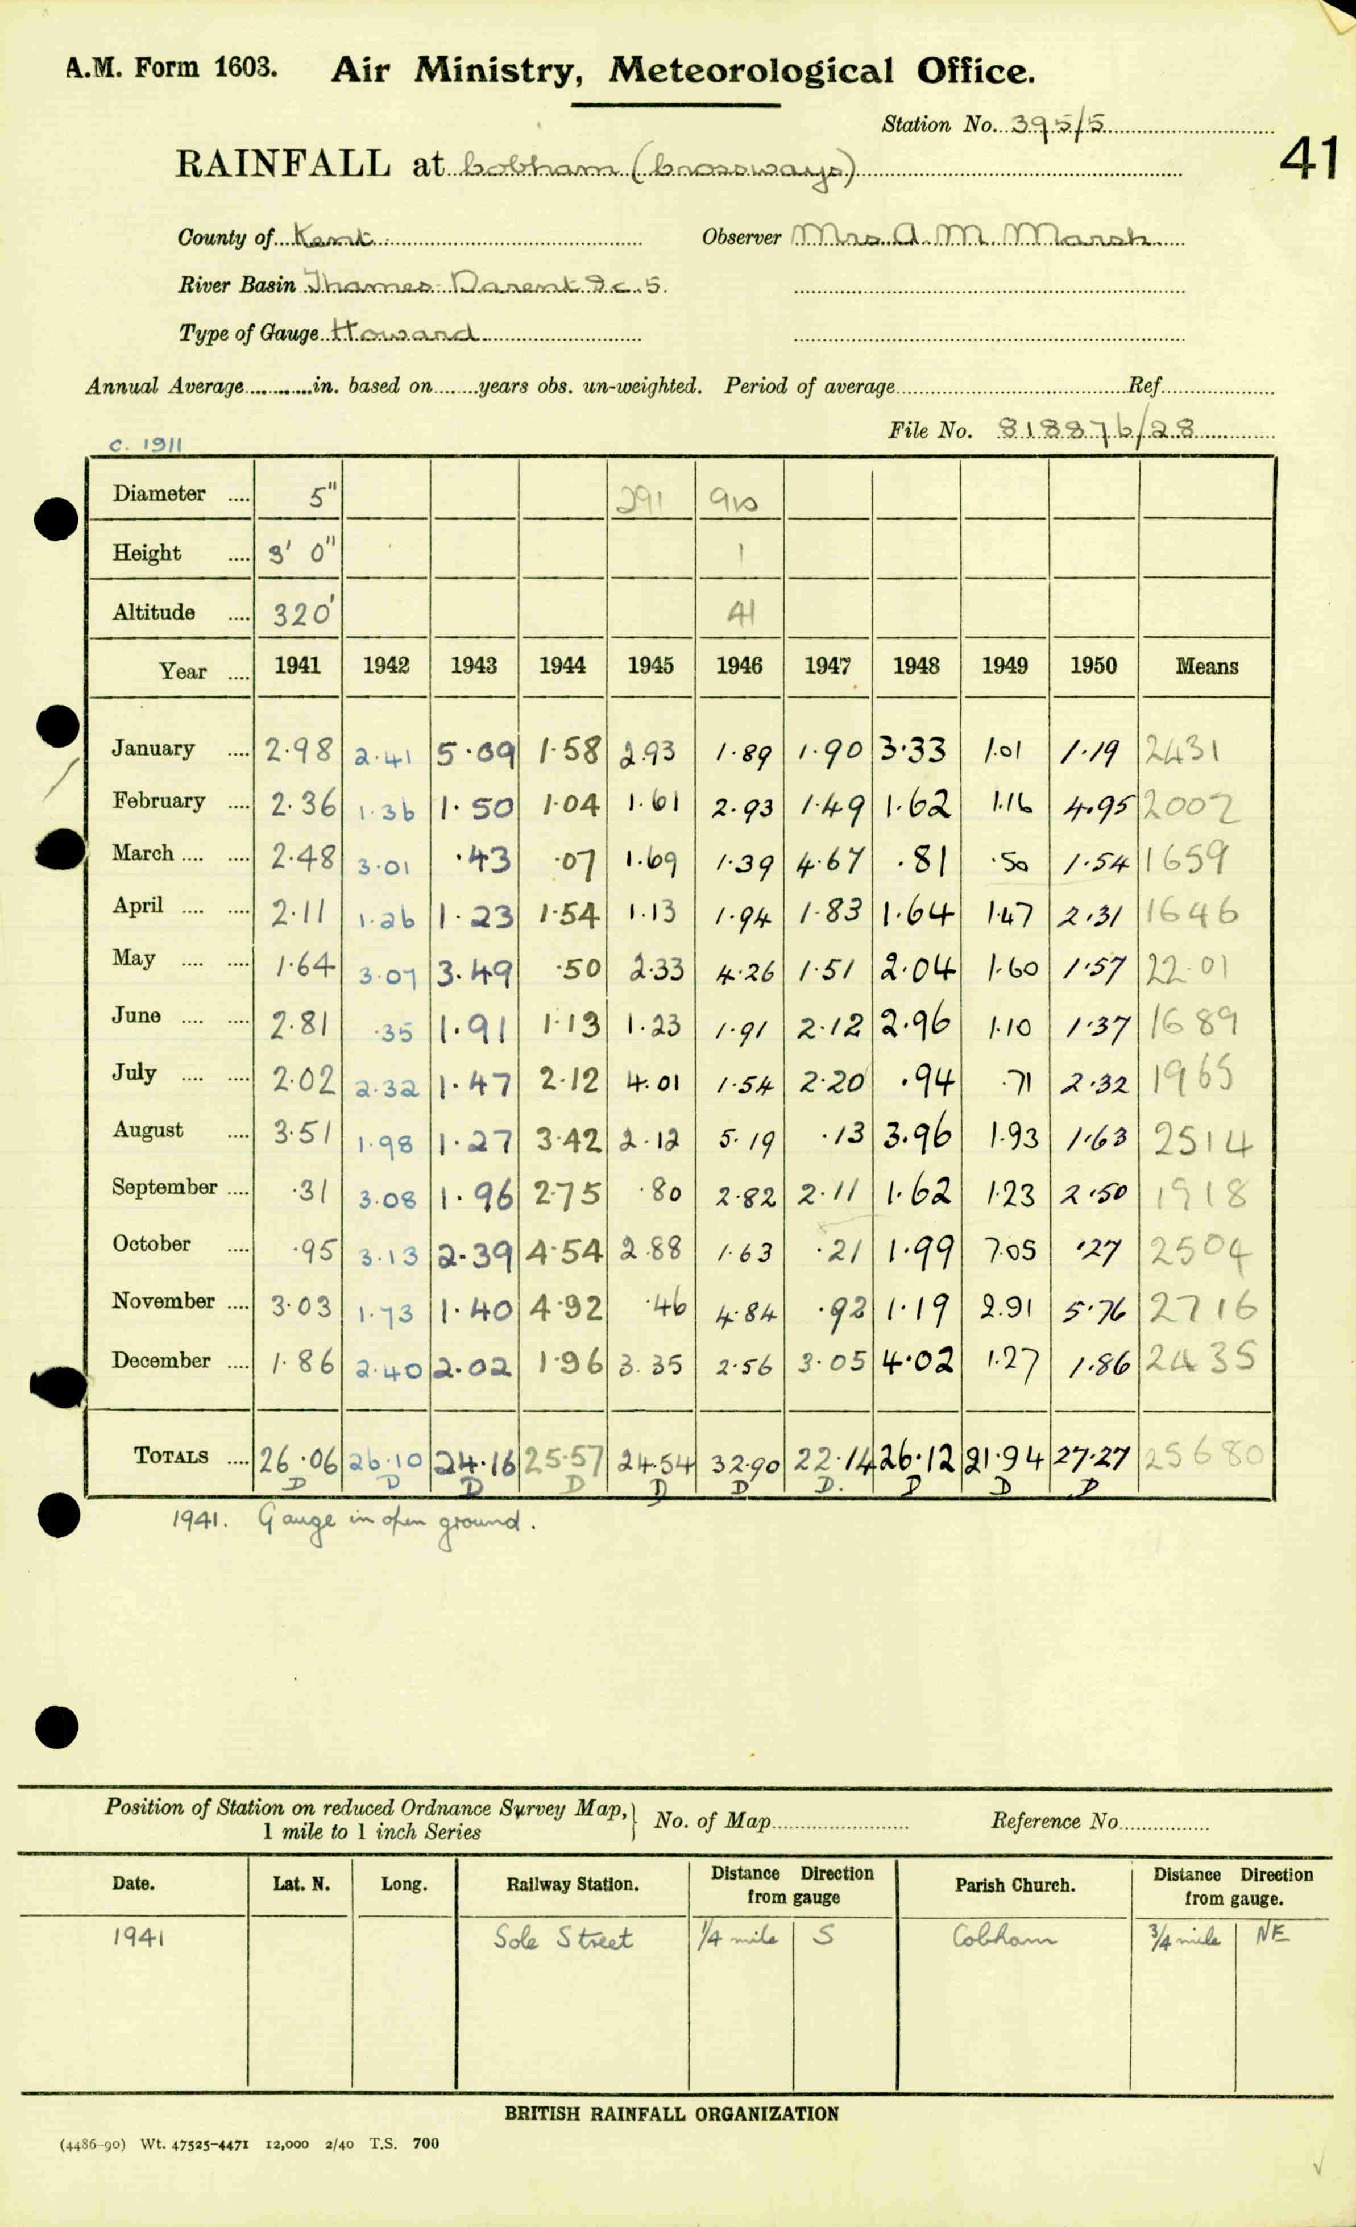 A.M. Form 1603. Air Ministry, Meteorological Office.
Station No. 395/5
41
RAINFALL at Cobham (Crossways)
County of Kent Observer Mrs A. M. Marsh
River Basin Thames Darent Sc. 5.
Type of Gauge Howard
Annual Average in. based on years obs. un-weighted. Period of average Ref.
File No. 818876/28
c. 1911
Diameter 5" 291
Height 3' 0" 1
Altitude 320' 41
Year 1941 1942 1943 1944 1945 1946 1947 1948 1949 1950 Means
January 2.98 2.41 5.09 1.58 2.93 1.89 1.90 3.33 1.01 1.19 2431
February 2.36 1.36 1.50 1.04 1.61 2.93 1.49 1.62 1.16 4.95 2002
March 2.48 3.01 .43 .07 1.69 1.39 4.67 .81 .50 1.54 1659
April 2.11 1.26 1.23 1.54 1.13 1.94 1.83 1.64 1.47 2.31 1646
May 1.64 3.07 3.49 .50 2.33 4.26 1.51 2.04 1.60 1.57 22.01
June 2.81 .35 1.91 1.13 1.23 1.91 2.12 2.96 1.10 1.37 1689
July 2.02 2.32 1.47 2.12 4.01 1.54 2.20 .94 .71 2.32 1965
August 3.51 1.98 1.27 3.42 2.12 5.19 .13 3.96 1.93 1.63 2514
September .31 3.08 1.96 2.75 .80 2.82 2.11 1.62 1.23 2.50 1918
October .95 3.13 2.39 4.54 2.88 1.63 .21 1.99 7.05 .27 2504
November 3.03 1.73 1.40 4.92 .46 4.84 .92 1.19 2.91 5.76 2716
December 1.86 2.40 2.02 1.96 3.35 2.56 3.05 4.02 1.27 1.86 2435
TOTALS 26.06 26.10 24.16 25.57 24.54 32.90 22.14 26.12 21.94 27.27 25680
D D D D D D D. D D D
1941. Gauge in open ground.
Position of Station on reduced Ordnance Survey Map, No. of Map Reference No.
1 mile to 1 inch Series
Date. Lat. N. Long. Railway Station. Distance Direction from gauge Parish Church. Distance Direction from gauge.
1941 Sole Street 1/4 mile S Cobham 3/4 mile NE
BRITISH RAINFALL ORGANIZATION
(4486-90) Wt. 47525-4471 12,000 2/40 T.S. 700